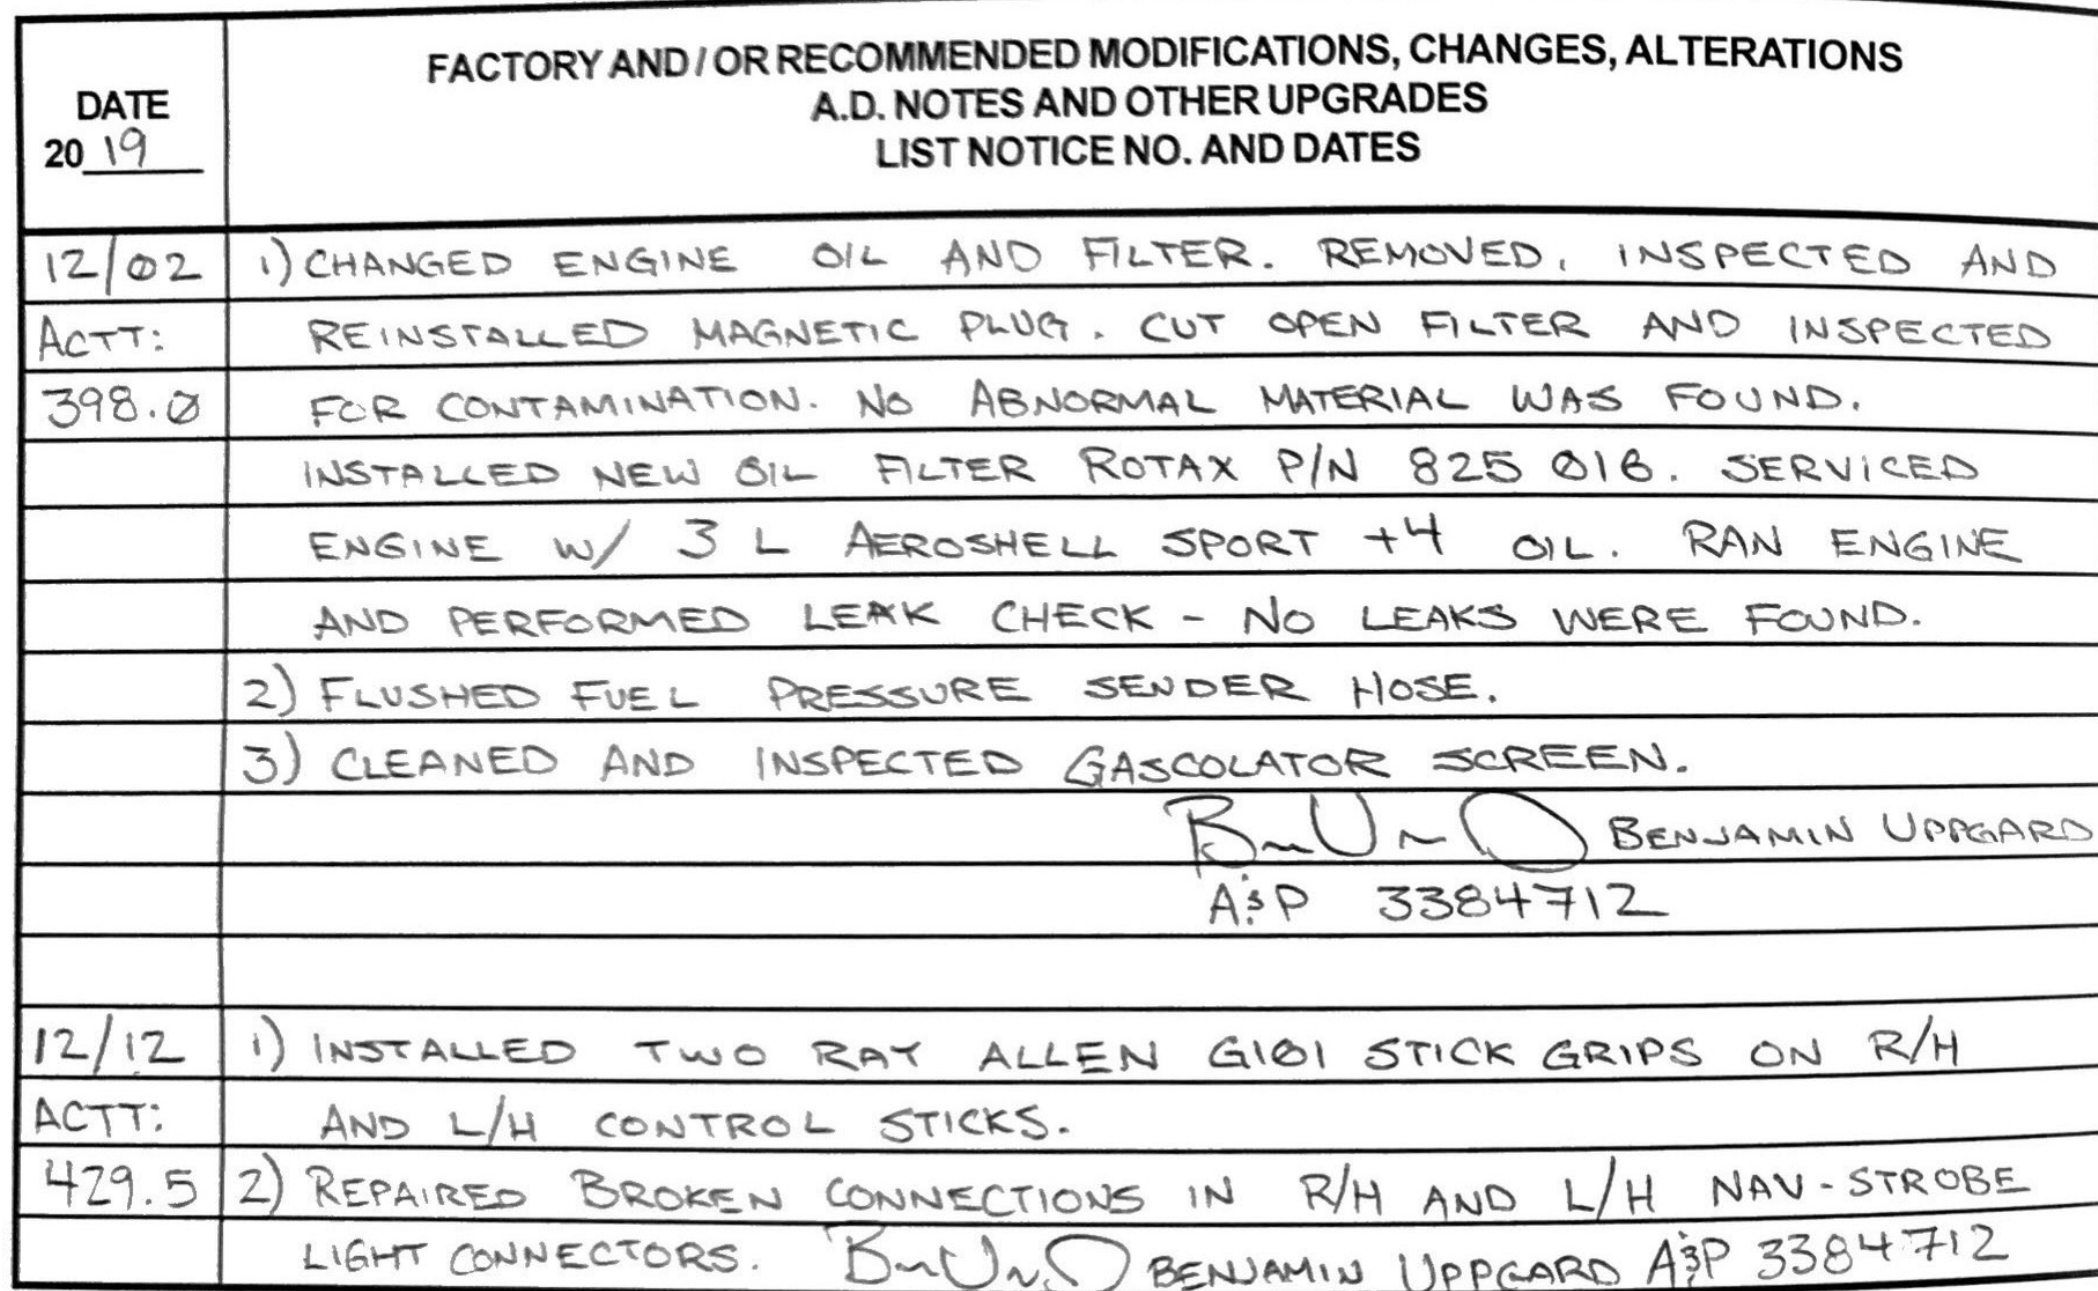 DATE
20 19
FACTORY AND / OR RECOMMENDED MODIFICATIONS, CHANGES, ALTERATIONS
A.D. NOTES AND OTHER UPGRADES
LIST NOTICE NO. AND DATES
12/02 1) CHANGED ENGINE OIL AND FILTER. REMOVED, INSPECTED AND
ACTT: REINSTALLED MAGNETIC PLUG. CUT OPEN FILTER AND INSPECTED
398.0 FOR CONTAMINATION. NO ABNORMAL MATERIAL WAS FOUND.
INSTALLED NEW OIL FILTER ROTAX P/N 825 016. SERVICED
ENGINE W/ 3 L AEROSHELL SPORT +4 OIL. RAN ENGINE
AND PERFORMED LEAK CHECK - NO LEAKS WERE FOUND.
2) FLUSHED FUEL PRESSURE SENDER HOSE.
3) CLEANED AND INSPECTED GASCOLATOR SCREEN.
BENJAMIN UPPGARD
A&P 3384712
12/12 1) INSTALLED TWO RAY ALLEN G101 STICK GRIPS ON R/H
ACTT: AND L/H CONTROL STICKS.
429.5 2) REPAIRED BROKEN CONNECTIONS IN R/H AND L/H NAV-STROBE
LIGHT CONNECTORS. BENJAMIN UPPGARD A&P 3384712